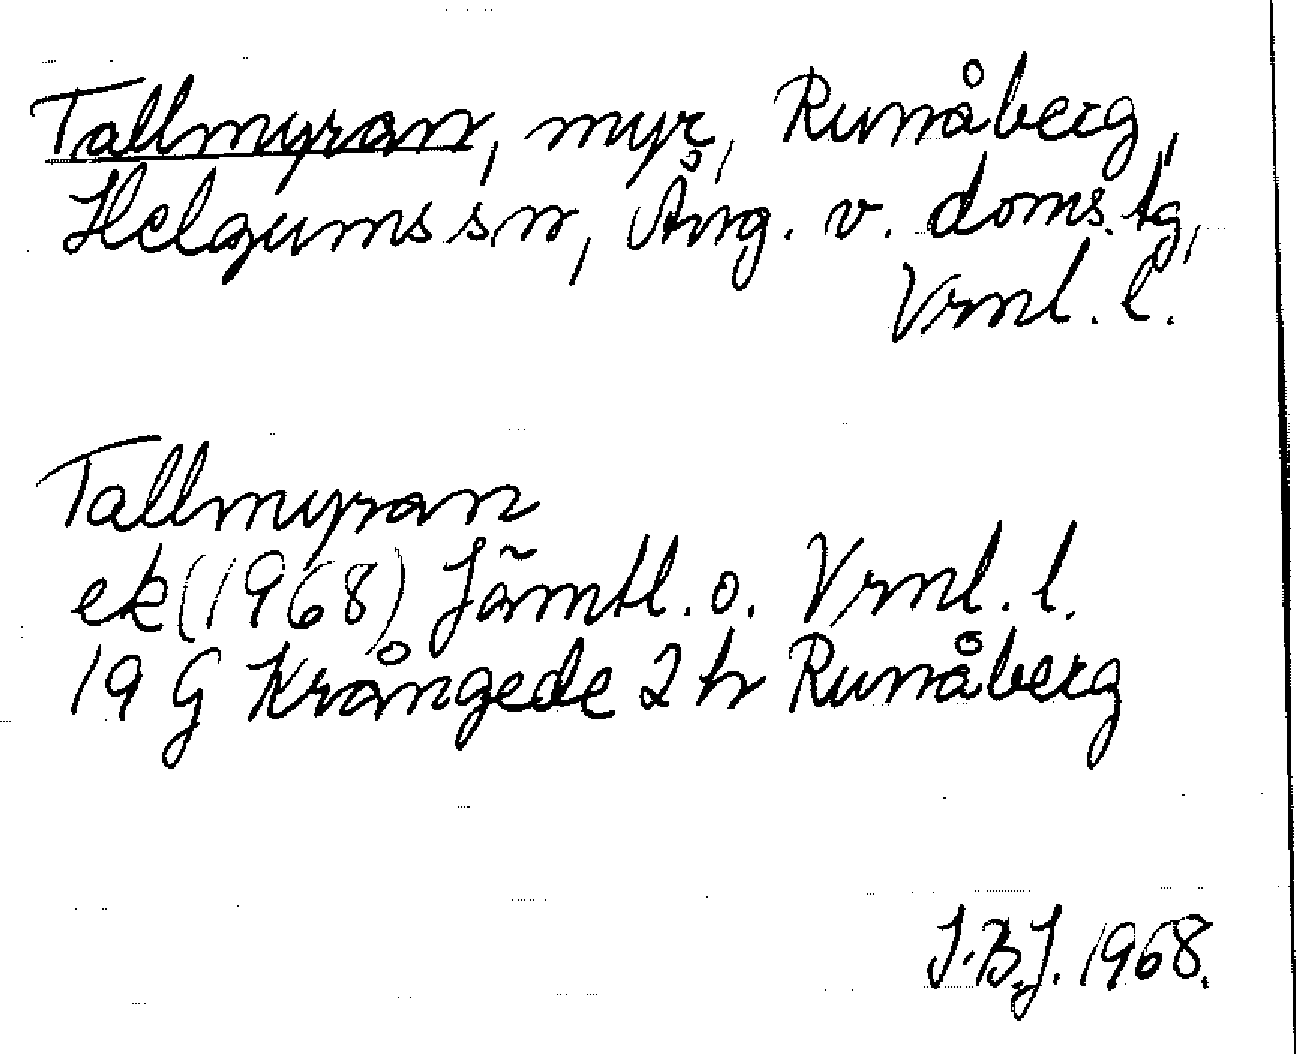 Tallmyran, myr, Runåberg,
Helgums sn, Ång. v. doms. tg,
Vrnl. l.
Tallmyran
ek (1968) Jämtl. o. Vrnl. l.
19 G Krångede 2 h Runåberg
J.B.J. 1968.